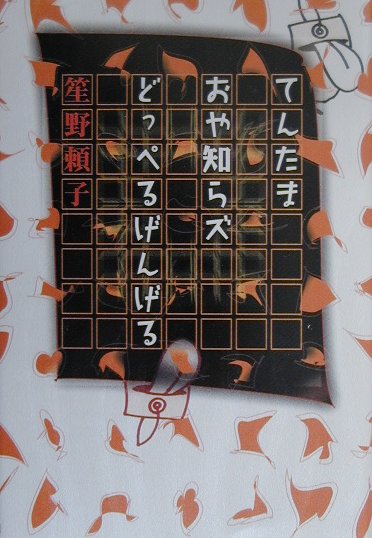 てんたま
おや知らズ
どっぺるげんげる
笙野頼子